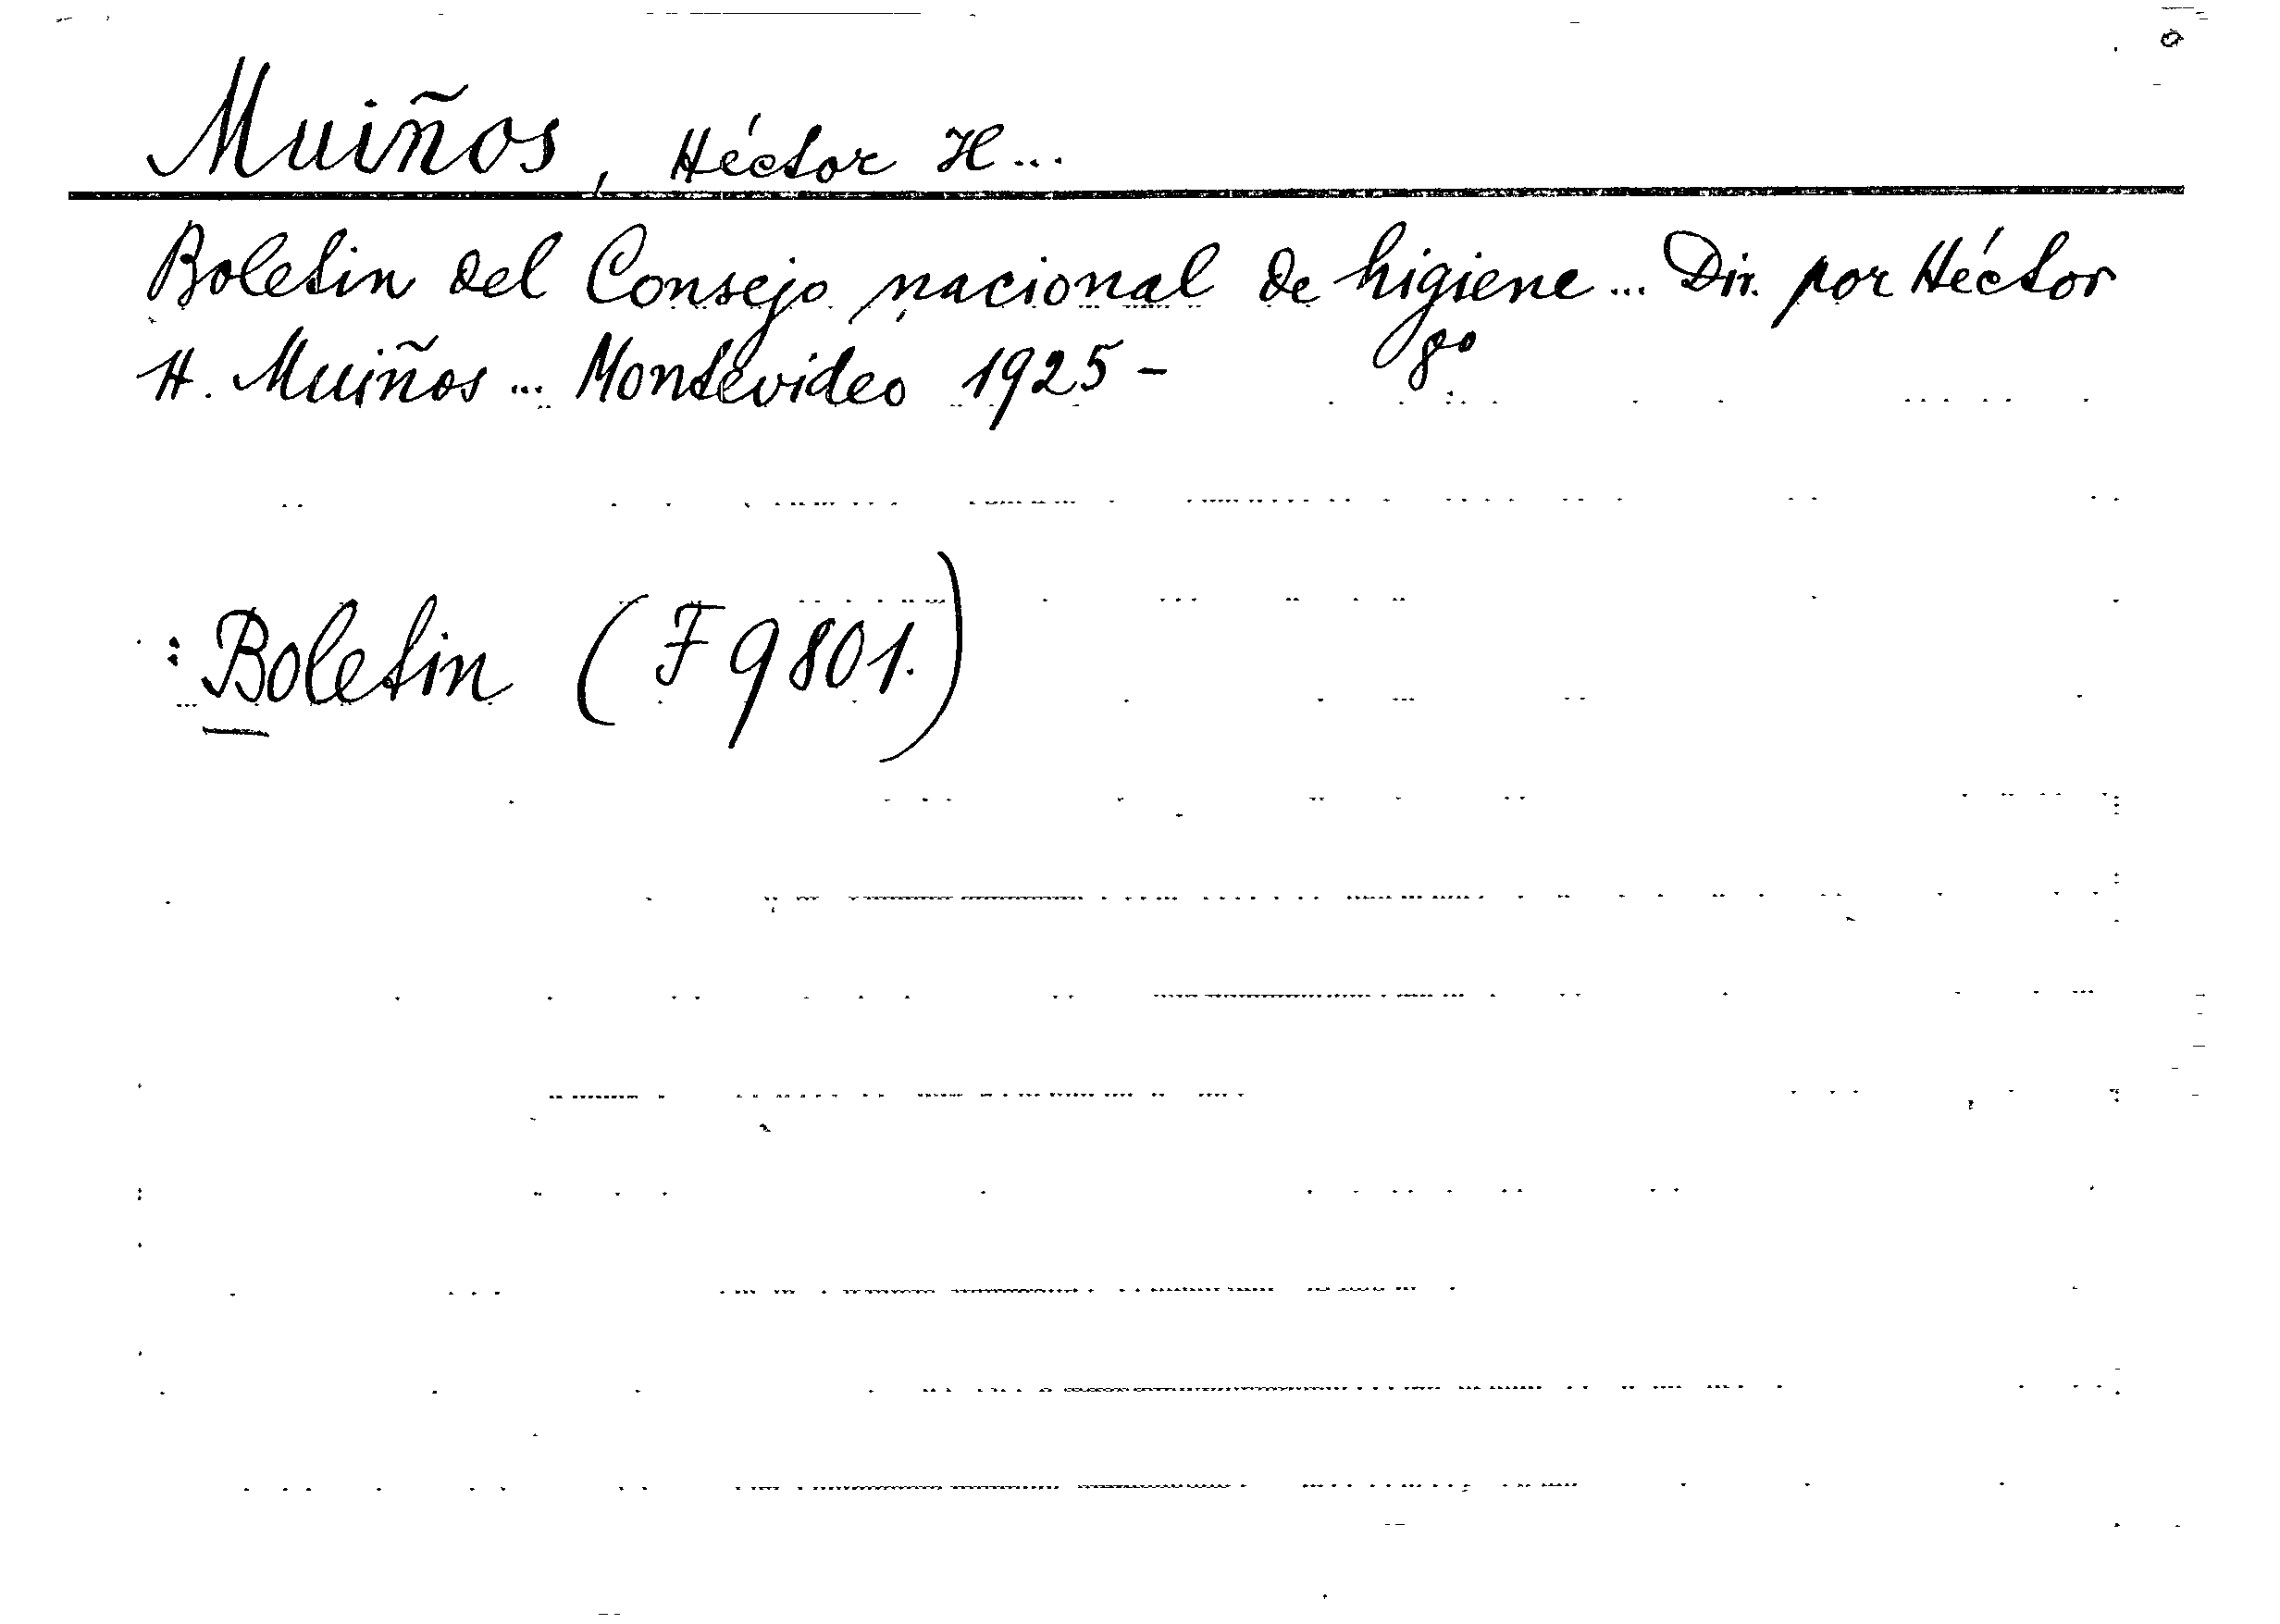 Muiños, Héctor H...
Boletin del Consejo nacional de higiene... Dir. por Héctor
H. Muiños... Montevideo 1925- 8º
: Boletin (F 9801.)